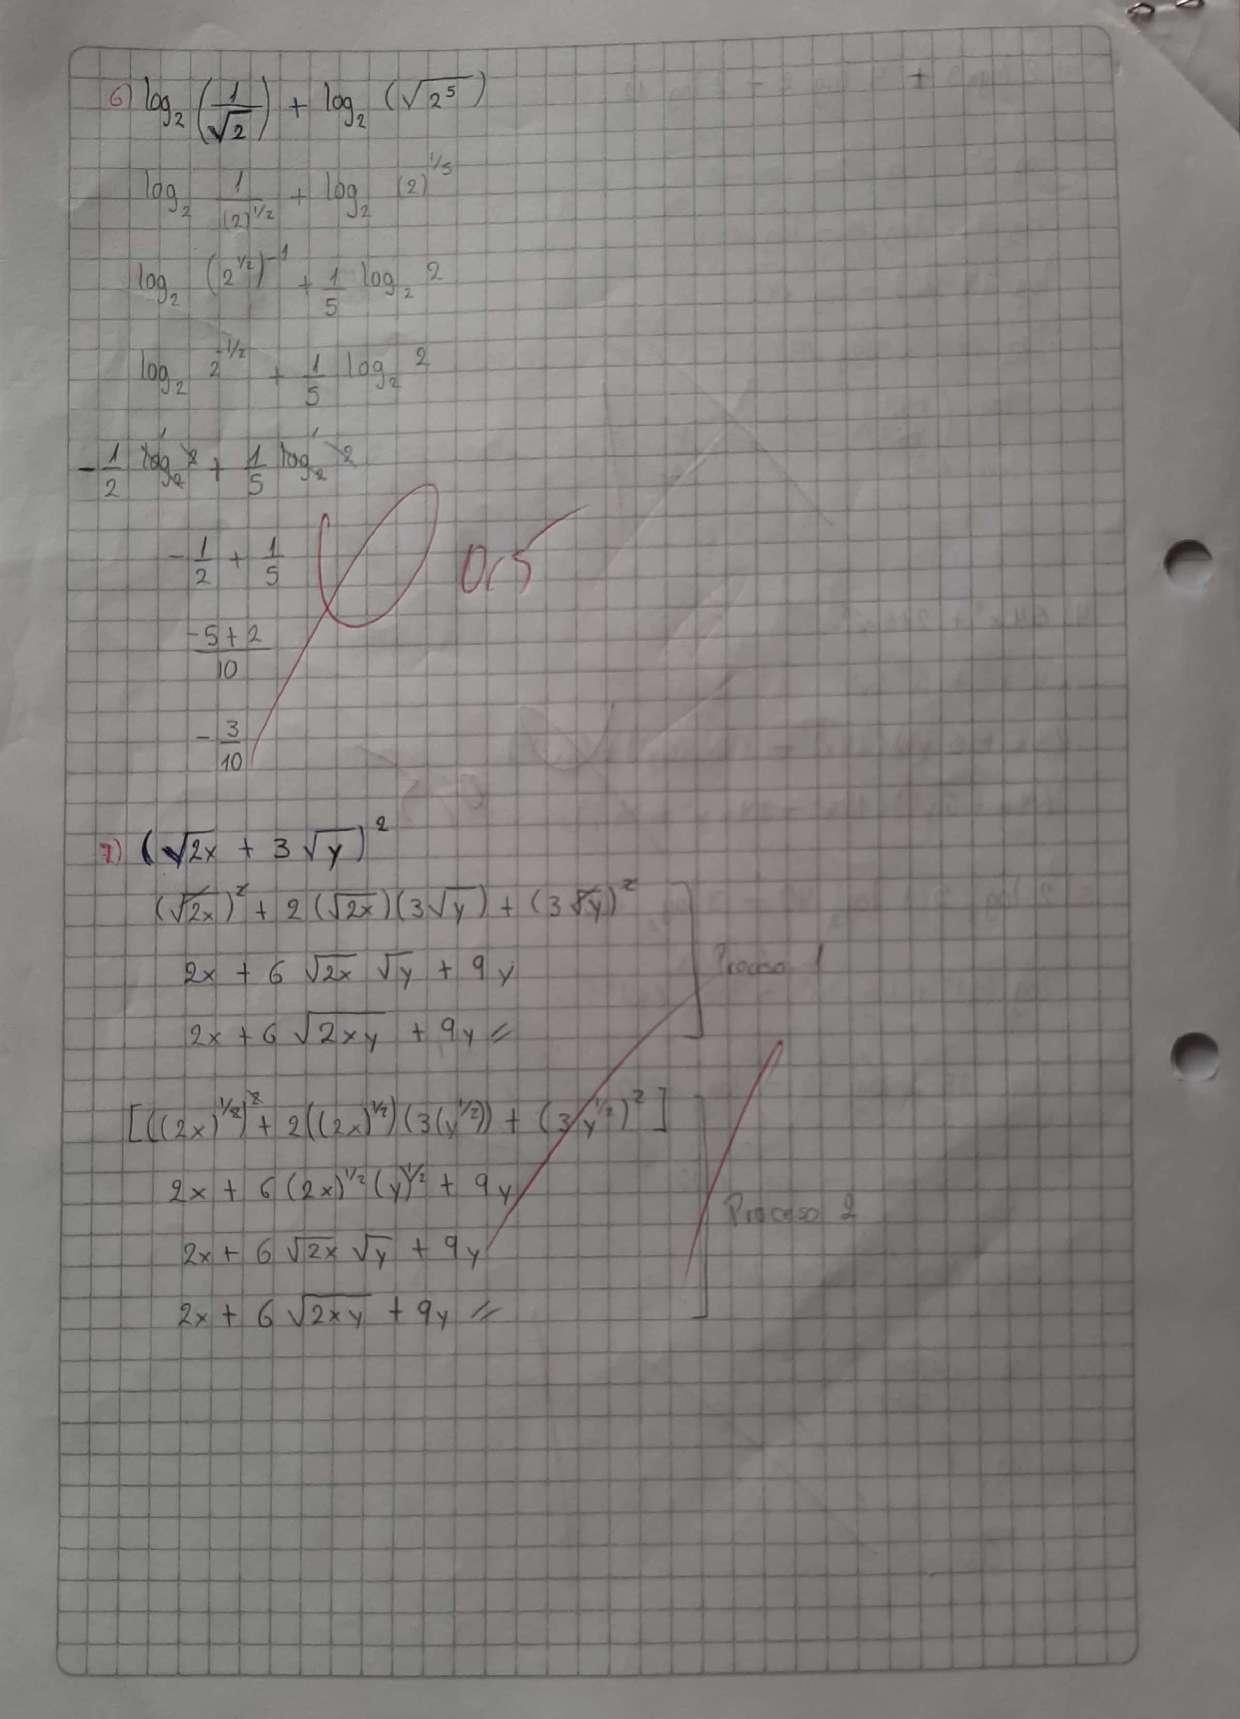 6) log₂ (1/√2) + log₂ (√2⁵)
log₂ 1/(2)^1/2 + log₂ (2)^1/5
log₂ (2^1/2)^-1 + 1/5 log₂ 2
log₂ 2^-1/2 + 1/5 log₂ 2
-1/2 log₂ 2 + 1/5 log₂ 2
-1/2 + 1/5
0,5
(-5+2)/10
-3/10
7) (√2x + 3√y)²
(√2x)² + 2(√2x)(3√y) + (3√y)²
2x + 6 √2x √y + 9y
Proceso 1
2x + 6 √2xy + 9y
[((2x)^1/2)² + 2((2x)^1/2)(3(y^1/2)) + (3y^1/2)²]
2x + 6(2x)^1/2 (y)^1/2 + 9y
Proceso 2
2x + 6 √2x √y + 9y
2x + 6 √2xy + 9y